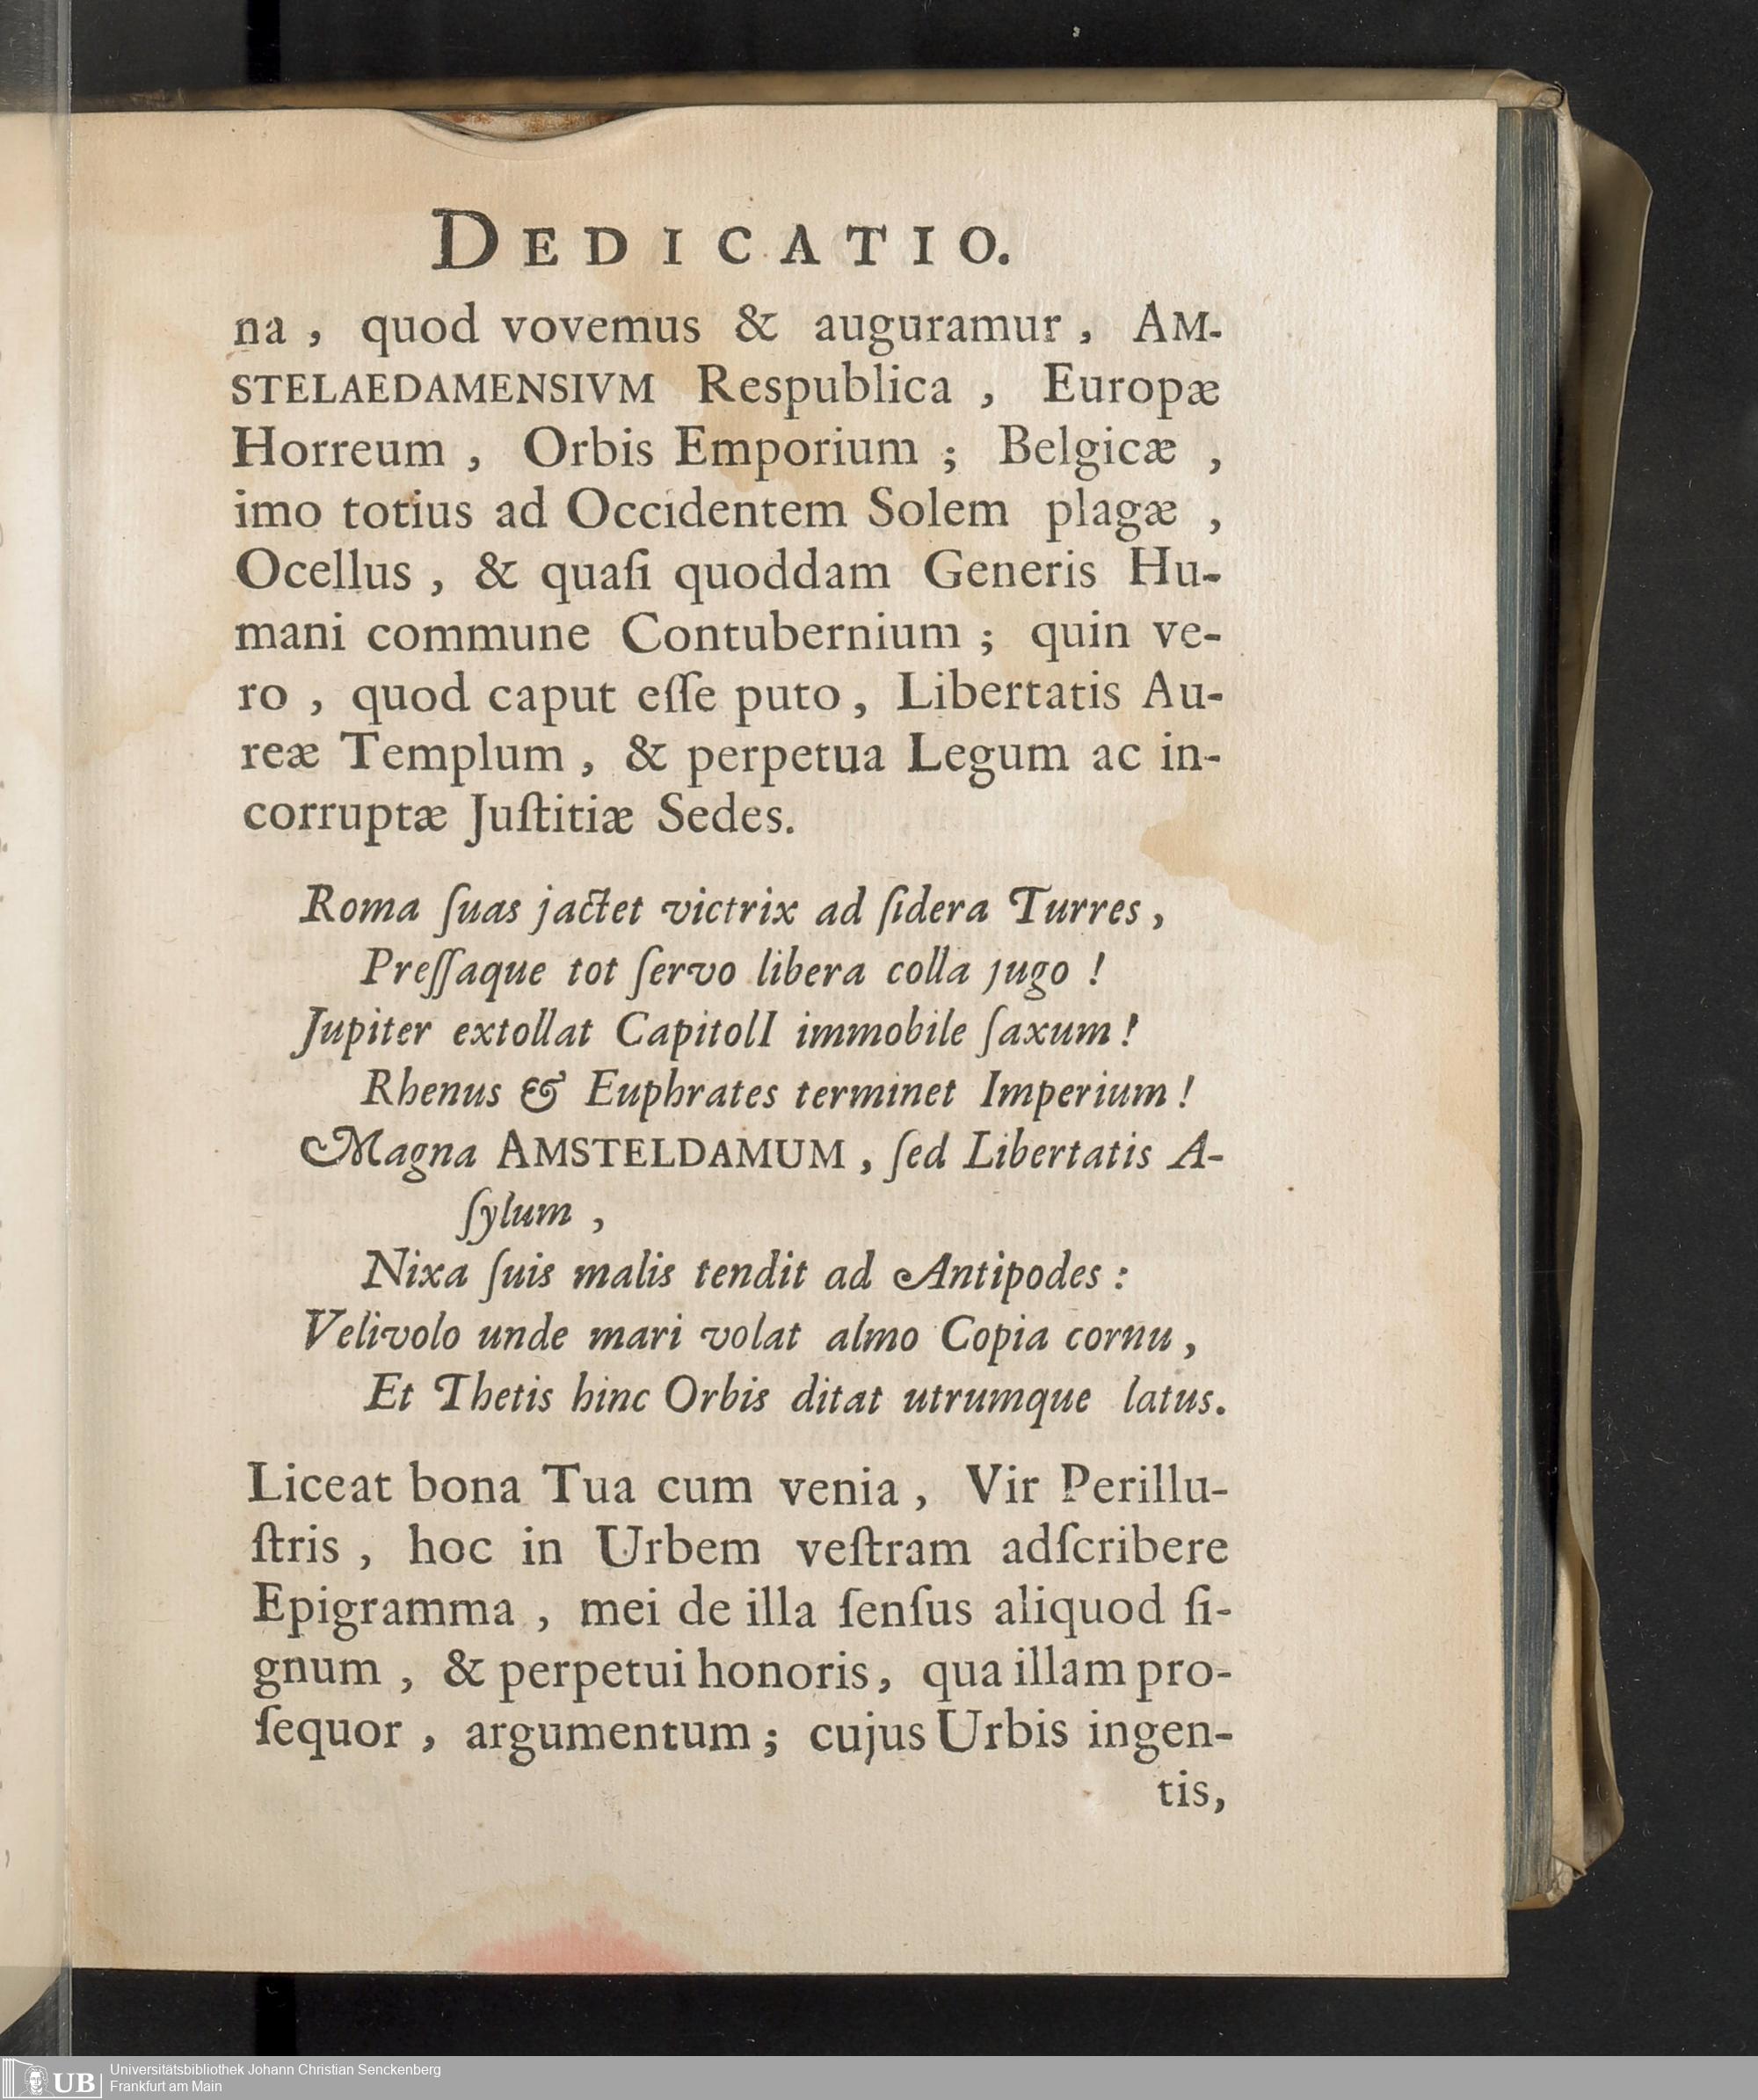 DEDICATIO.
na, quod vovemus & auguramur, AM-
STELAEDAMENSIVM Respublica, Europæ
Horreum, Orbis Emporium; Belgicæ,
imo totius ad Occidentem Solem plagæ,
Ocellus, & quaſi quoddam Generis Hu-
mani commune Contubernium; quin ve-
ro, quod caput eſſe puto, Libertatis Au-
reæ Templum, & perpetua Legum ac in-
corruptæ Juſtitiæ Sedes.
Roma ſuas jactet victrix ad ſidera Turres,
Preſſaque tot ſervo libera colla jugo!
Jupiter extollat CapitolI immobile ſaxum!
Rhenus & Euphrates terminet Imperium!
Magna AMSTELDAMUM, ſed Libertatis A-
ſylum,
Nixa ſuis malis tendit ad Antipodes:
Velivolo unde mari volat almo Copia cornu,
Et Thetis hinc Orbis ditat utrumque latus.
Liceat bona Tua cum venia, Vir Perillu-
ſtris, hoc in Urbem veſtram adſcribere
Epigramma, mei de illa ſenſus aliquod ſi-
gnum, & perpetui honoris, qua illam pro-
ſequor, argumentum; cujus Urbis ingen-
tis,
UB
Universitätsbibliothek Johann Christian Senckenberg
Frankfurt am Main